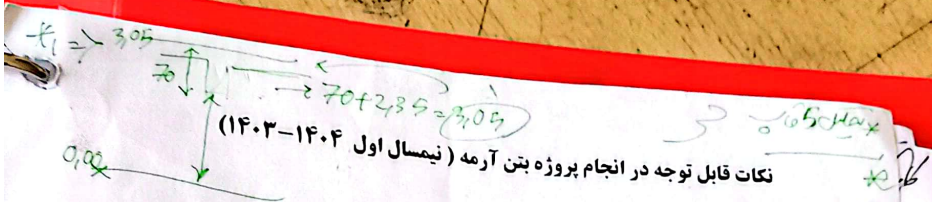 3,05
70
70+2,35=3,05
نکات قابل توجه در انجام پروژه بتن آرمه ( نیمسال اول ۱۴۰۴-۱۴۰۳)
0,00